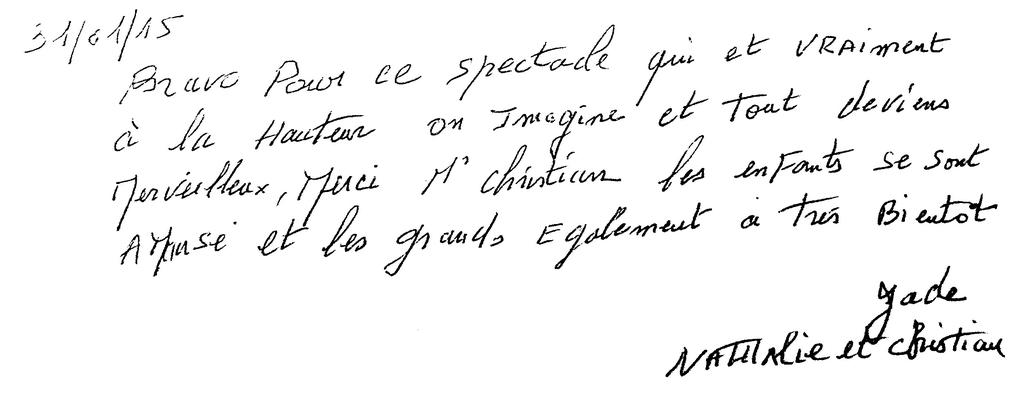 31/01/15
Bravo Pour ce spectacle qui et VRAiment
à la Hauteur on Imagine et Tout deviens
Merveilleux, Merci Mr Christian les enfants se sont
AMusé et les grands Egalement à Très Bientot
Jade
NATHAlie et christian